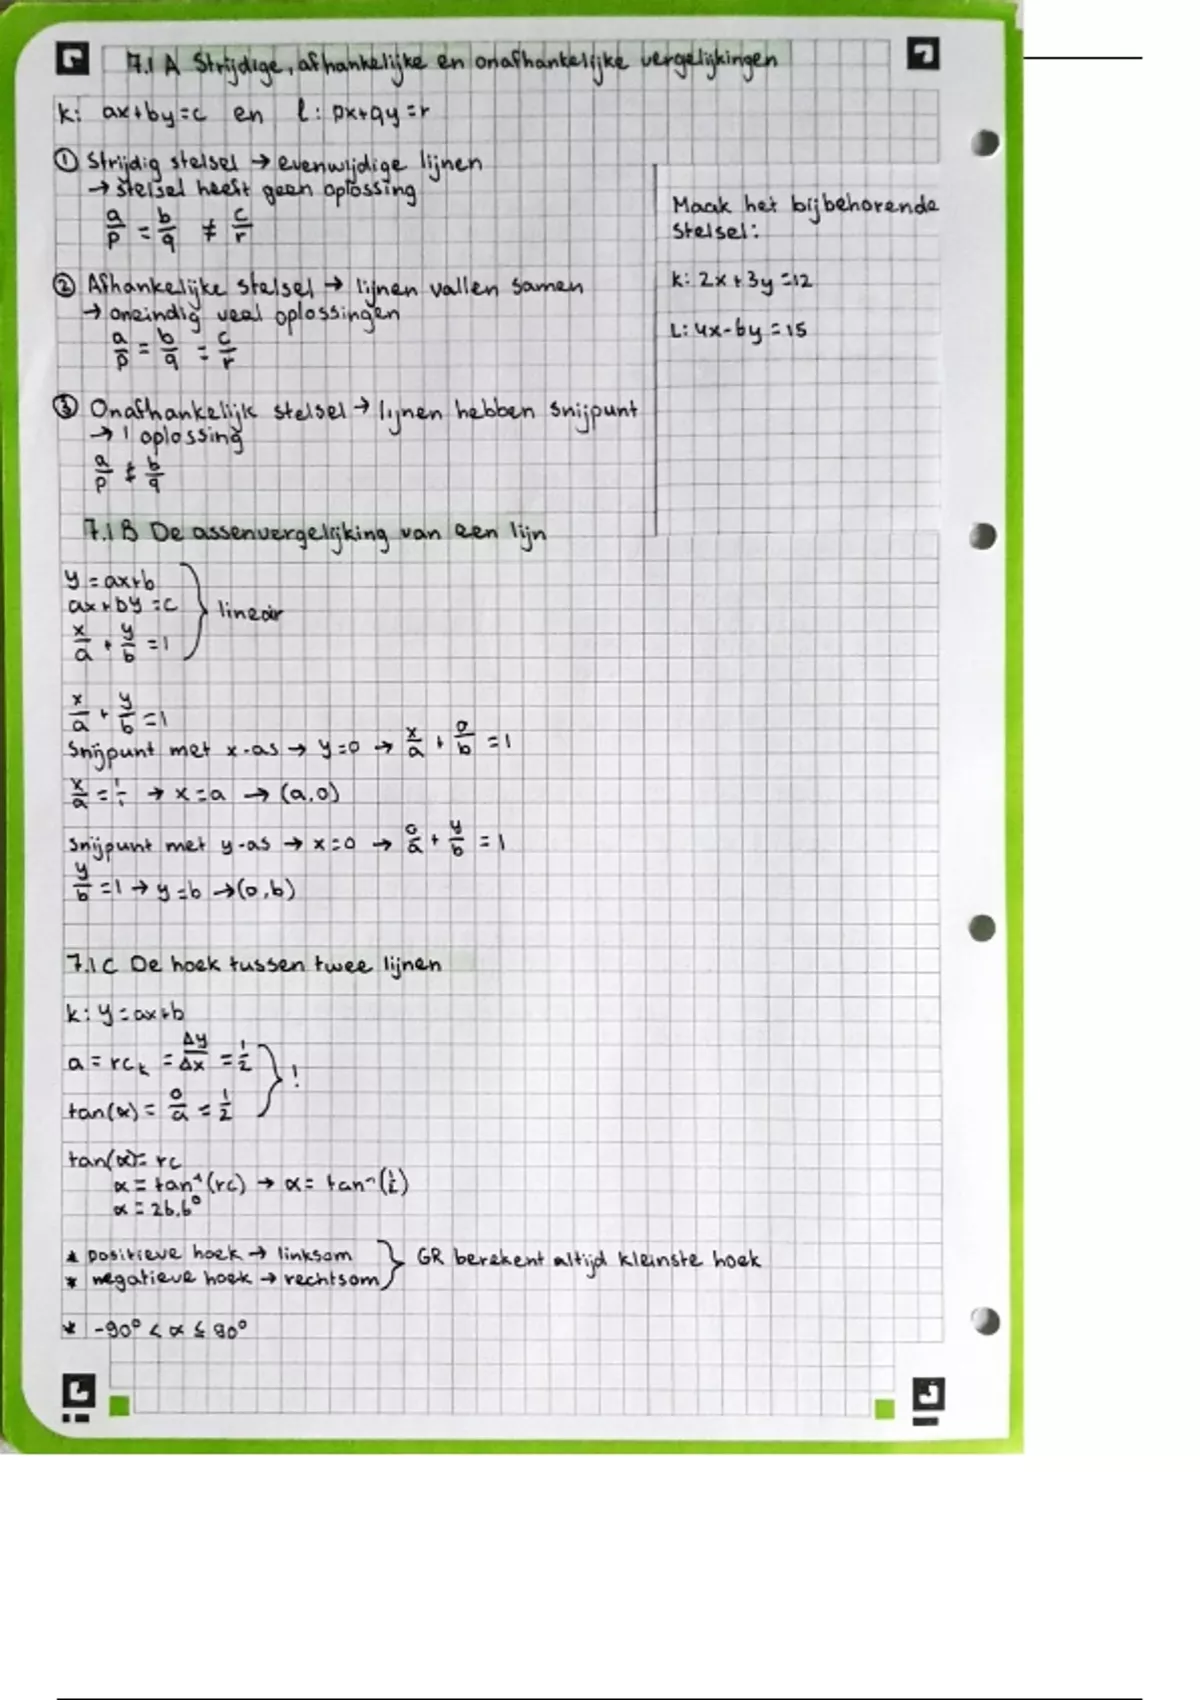 7.1 A Strijdige, afhankelijke en onafhankelijke vergelijkingen
k: ax+by=c en l: px+qy=r
① Strijdig stelsel → evenwijdige lijnen
→ stelsel heeft geen oplossing
a/p = b/q ≠ c/r
② Afhankelijke stelsel → lijnen vallen samen
→ oneindig veel oplossingen
a/p = b/q = c/r
③ Onafhankelijk stelsel → lijnen hebben snijpunt
→ 1 oplossing
a/p ≠ b/q
Maak het bijbehorende
stelsel:
k: 2x+3y=12
L: 4x-6y=15
7.1 B De assenvergelijking van een lijn
y = ax+b
ax+by=c
x/a + y/b = 1
} lineair
x/a + y/b = 1
Snijpunt met x-as → y=0 → x/a + 0/b = 1
x/a = 1/1 → x=a → (a,0)
snijpunt met y-as → x=0 → 0/a + y/b = 1
y/b = 1 → y=b → (0,b)
7.1 C De hoek tussen twee lijnen
k: y=ax+b
a = rck = Δy/Δx = 1/2
tan(α) = o/a = 1/2
} !
tan(α) = rc
α = tan⁻¹(rc) → α = tan⁻¹(½)
α = 26,6°
* positieve hoek → linksom
* negatieve hoek → rechtsom
} GR berekent altijd kleinste hoek
* -90° < α ≤ 90°